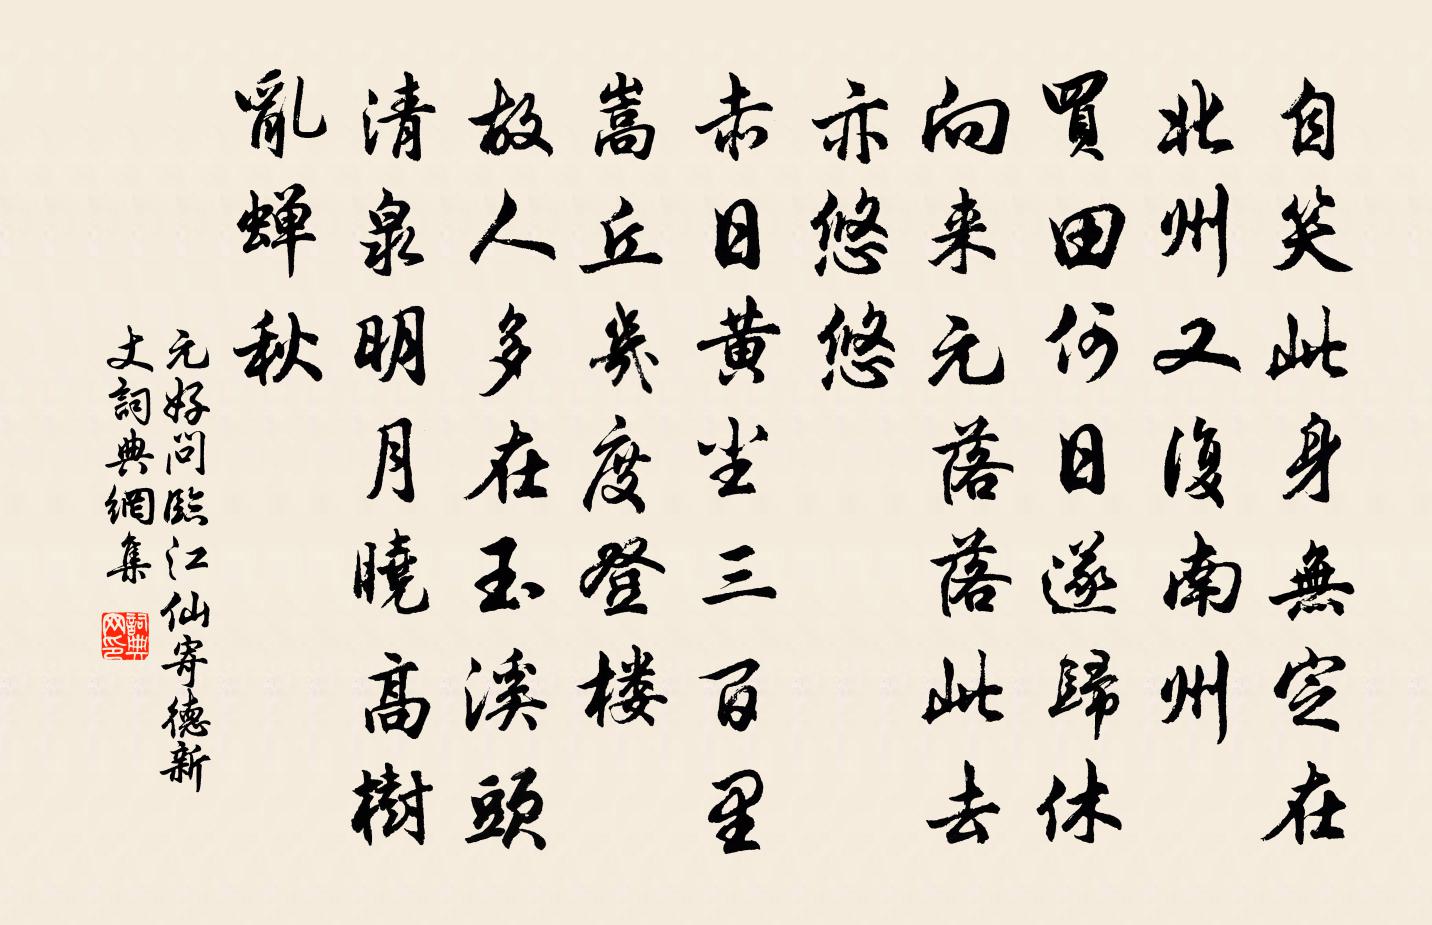 自笑此身無定在
北州又復南州
買田何日遂歸休
向来元落落此去
亦悠悠
赤日黄尘三百里
嵩丘幾度登楼
故人多在玉溪頭
清泉明月曉高樹
亂蝉秋
元好问臨江仙寄德新
丈詞典網集
詞典网印